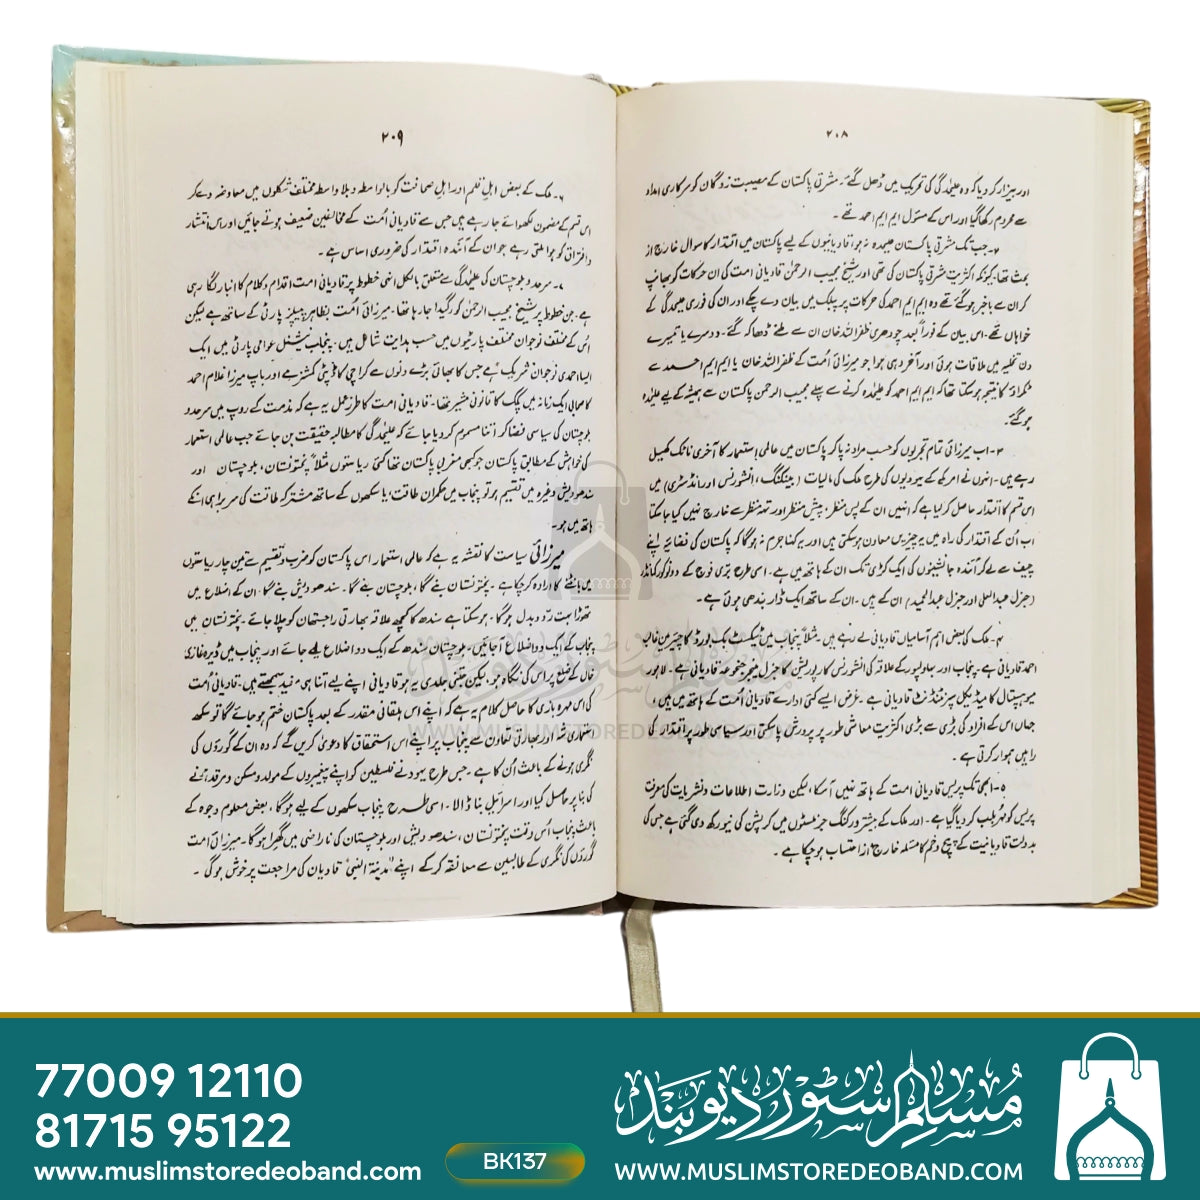 ۲۰۸
اور بیزار کر دیا کہ وہ علیحدگی کی تحریک میں ڈھل گئے۔ مشرقی پاکستان کے مصیبت زدگان کو سرکاری امداد
سے محروم رکھا گیا اور اس کے مسئول ایم ایم احمد تھے۔
۲۔ جب تک مشرقی پاکستان علیحدہ نہ ہو، قادیانیوں کے لیے پاکستان میں اقتدار کا سوال خارج از
بحث تھا، کیونکہ اکثریت مشرقی پاکستان کی تھی اور شیخ مجیب الرحمٰن قادیانی امت کی ان حرکات کو بھانپ
کر ان سے باخبر ہو گئے تھے وہ ایم ایم احمد کی حرکات پر پبلک میں بیان دے چکے اور ان کی فوری علیحدگی کے
خواہاں تھے۔ اس بیان کے فوراً بعد چودھری ظفر اللہ خان ان سے ملنے ڈھاکہ گئے۔ دوسرے یا تیسرے
دن تخلیہ میں ملاقات ہوئی اور آخر وہی ہوا جو میرزائی اُمت کے ظفر اللہ خان یا ایم ایم احمد سے
ٹکراؤ کا نتیجہ ہو سکتا تھا کہ ایم ایم احمد کو علیحدہ کرنے سے پہلے مجیب الرحمٰن پاکستان سے ہمیشہ کے لیے علیحدہ
ہو گئے۔
۳۔ اب میرزائی تمام تجربوں کو حسب مراد نہ پا کر پاکستان میں عالمی استعمار کا آخری ناٹک کھیل
رہے ہیں۔ انہوں نے امریکہ کے یہودیوں کی طرح ملک کی مالیات (بینکنگ، انشورنس اور انڈسٹری) میں
اس قسم کا اقتدار حاصل کر لیا ہے کہ انہیں ان کے پس منظر، پیش منظر اور تہہ منظر سے خارج نہیں کیا جا سکتا
اب اُن کے اقتدار کی راہ میں یہ چیزیں معاون ہو سکتی ہیں اور یہ کہنا جرم نہ ہوگا کہ پاکستان کی فضائیہ اپنے
چیف سے لے کر آئندہ جانشینوں کی ایک کڑی تک ان کے ہاتھ میں ہے۔ اسی طرح بری فوج کے دو فور کمانڈر
(جنرل عبدالعلی اور جنرل عبدالحمید) ان کے ہیں۔ ان کے ساتھ ایک ڈار بندھی ہوئی ہے۔
۴۔ ملک کی بعض اہم آسامیاں قادیانی لے رہے ہیں۔ مثلاً پنجاب میں ٹیکسٹ بک بورڈ کا چیئرمین غالب
احمد قادیانی ہے۔ پنجاب اور بہاولپور کے علاقہ کی انشورنس کارپوریشن کا جنرل منیجر جنجوعہ قادیانی ہے۔ لاہور
میوہسپتال کا میڈیکل سپرنٹنڈنٹ قادیانی ہے۔ غرض ایسے کئی ادارے قادیانی اُمت کے ہاتھ میں ہیں،
جہاں اس کے افراد کی بڑی سے بڑی اکثریت معاشی طور پر پرورش پا سکتی اور سیاسی طور پر اقتدار کی
راہیں ہموار کرتی ہے۔
۵۔ ابھی تک پریس قادیانی امت کے ہاتھ نہیں آ سکا، لیکن وزارت اطلاعات و نشریات کی معرفت
پریس کو مُہر بلب کر دیا گیا ہے۔ اور ملک کے بیشتر ورکنگ جرنلسٹوں میں کرپشن کی نیو رکھ دی گئی ہے جس کی
بدولت قادیانیت کے پیچ و خم کا مسئلہ خارج از احتساب ہو چکا ہے۔
۲۰۹
۶۔ ملک کے بعض اہل قلم اور اہل صحافت کو بالواسطہ و بلا واسطہ مختلف شکلوں میں معاوضہ دے کر
اس قسم کے مضمون لکھوائے جا رہے ہیں جس سے قادیانی اُمت کے مخالفین ضعیف ہوتے جائیں اور اس انتشار
و افتراق کو ہوا ملتی رہے جو ان کے آئندہ اقتدار کی ضروری اساس ہے۔
۷۔ سرحد و بلوچستان کی علیحدگی سے متعلق بالکل انہی خطوط پر قادیانی امت اقدام و کلام کا انبار لگا رہی
ہے۔ جن خطوط پر شیخ مجیب الرحمٰن کو رگیدا جا رہا تھا۔ میرزائی اُمت بظاہر پیپلز پارٹی کے ساتھ ہے لیکن
اُس کے مختلف نوجوان مختلف پارٹیوں میں حسب ہدایت شامل ہیں۔ پنجاب نیشنل عوامی پارٹی میں ایک
ایسا احمدی نوجوان شریک ہے جس کا بھائی بڑے دنوں سے کراچی کا ڈپٹی کمشنر ہے اور باپ میرزا غلام احمد
کا صحابی ایک زمانہ میں پیک کا قانونی مشیر تھا۔ قادیانی امت کا طرزِ عمل یہ ہے کہ مذمت کے روپ میں سرحد و
بلوچستان کی سیاسی فضا کو اتنا مسموم کر دیا جائے کہ علیحدگی کا مطالبہ حقیقت بن جائے جب عالمی استعمار
کی خواہش کے مطابق پاکستان جو کبھی مغربی پاکستان تھا کئی ریاستوں مثلاً پختونستان، بلوچستان اور
سندھودیش وغیرہ میں تقسیم ہو تو پنجاب میں حکمران طاقت یا سکھوں کے ساتھ مشترکہ طاقت کی سربراہی انکے
ہاتھ میں ہو۔
میرزائی سیاست کا نقشہ یہ ہے کہ عالمی استعمار اس پاکستان کو ضرب و تقسیم سے تین چار ریاستوں
میں بانٹنے کا ارادہ کر چکا ہے۔ پختونستان بنے گا، بلوچستان بنے گا۔ سندھودیش بنے گا۔ ان کے اضلاع میں
تھوڑا بہت ردّ و بدل ہو گا۔ ہو سکتا ہے سندھ کا کچھ علاقہ بھارتی راجستھان کو چلا جائے۔ پختونستان میں
پنجاب کے ایک دو اضلاع آ جائیں۔ بلوچستان سندھ کے ایک دو اضلاع لے جائے اور پنجاب میں ڈیرہ غازی
خاں کے ضلع پر اس کی نگاہ ہو۔ لیکن جتنی جلدی یہ ہو قادیانی اپنے لیے اتنا ہی مفید سمجھتے ہیں۔ قادیانی اُمت
کی اس مہرہ بازی کا حاصل کلام یہ ہے کہ اپنے اس بلقانی مقدر کے بعد پاکستان ختم ہو جائے گا تو سکھ
استعماری شہ اور بھارتی تعاون سے پنجاب پر اپنے اس استحقاق کا دعویٰ کریں گے کہ وہ ان کے گوروؤں کی
نگری ہونے کے باعث اُن کا ہے۔ جس طرح یہود نے فلسطین کو اپنے پیغمبروں کے مولد و مسکن و مرقد ہونے
کی بنا پر حاصل کیا اور اسرائیل بنا ڈالا۔ اسی طرح پنجاب سکھوں کے لیے ہو گا، بعض معلوم وجوہ کے
باعث پنجاب اُس وقت پختونستان، سندھودیش اور بلوچستان کی ناراضی میں گھرا ہو گا۔ میرزائی امت
گوروؤں کی نگری کے طالبین سے معانقہ کر کے اپنے "مدینۃ النبی" قادیان کی مراجعت پر خوش ہو گی۔
WWW.MUSLIMSTOREDEOBAND.COM
77009 12110
81715 95122
www.muslimstoredeoband.com
BK137
مسلم سٹور دیوبند
WWW.MUSLIMSTOREDEOBAND.COM